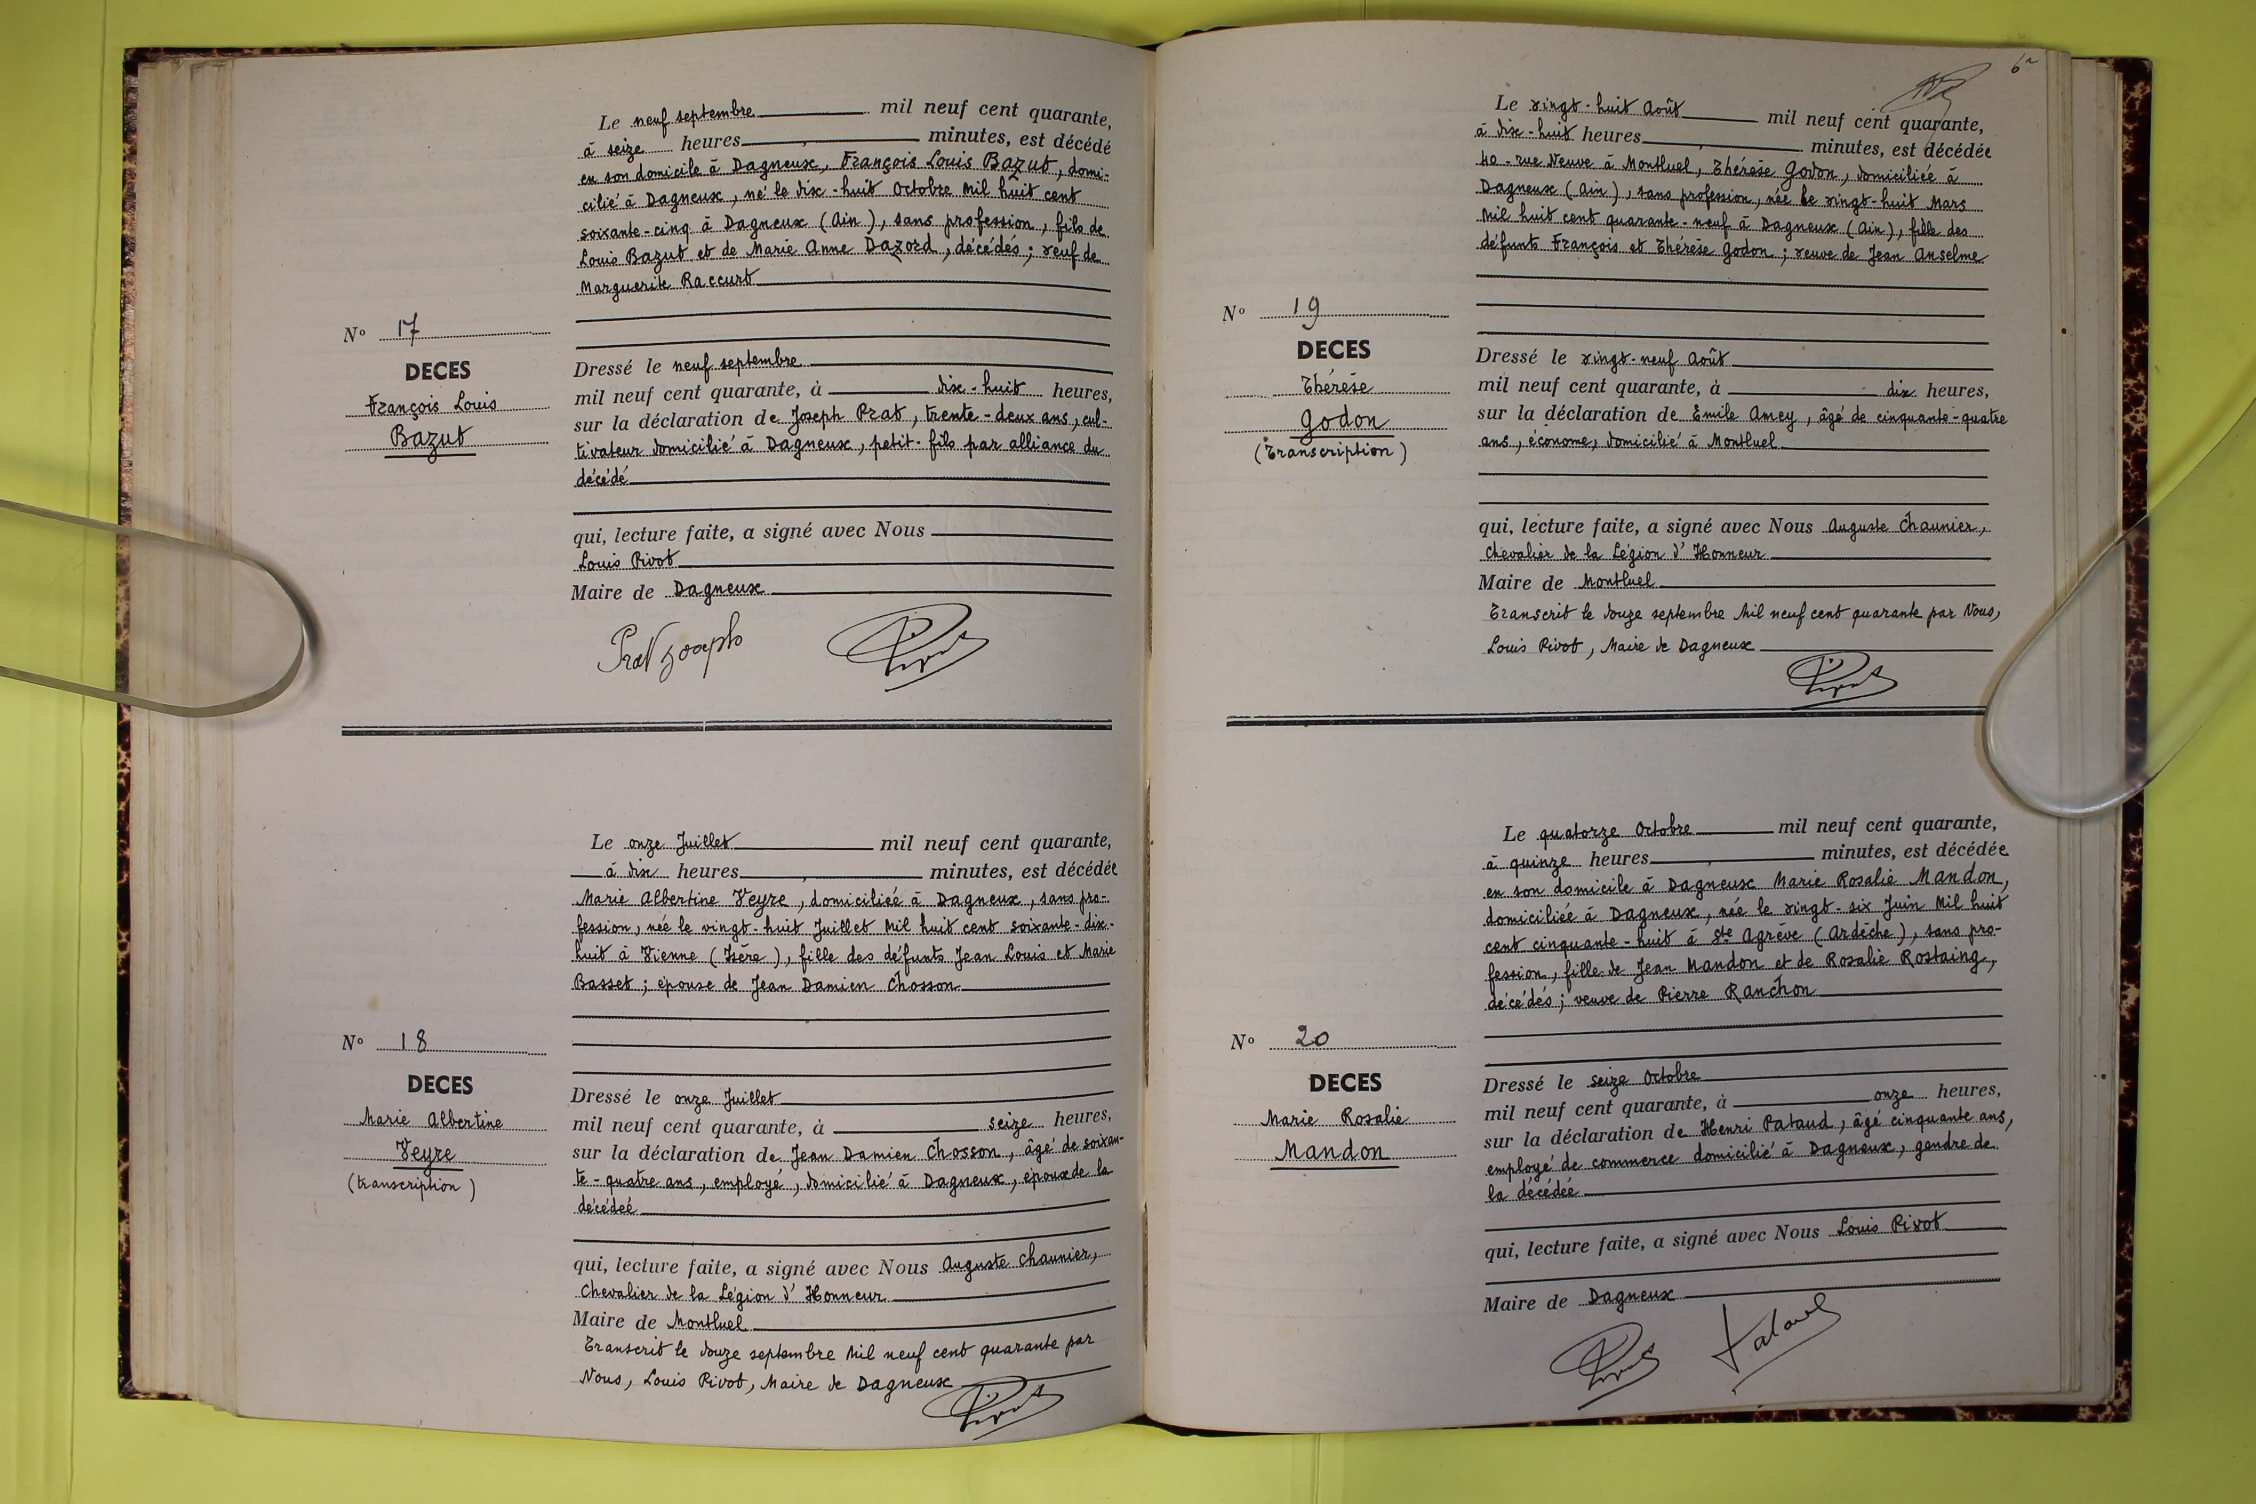 Le neuf septembre mil neuf cent quarante,
à seize heures minutes, est décédé
en son domicile à Dagneux, François Louis Bazut, domi-
cilié à Dagneux, né le dix-huit Octobre Mil huit cent
soixante-cinq à Dagneux (Ain), sans profession, fils de
Louis Bazut et de Marie Anne Dazord, décédés; veuf de
Marguerite Raccurt
N° 17
DECES
François Louis
Bazut
Dressé le neuf septembre
mil neuf cent quarante, à dix-huit heures,
sur la déclaration de Joseph Prat, trente-deux ans, cul-
tivateur domicilié à Dagneux, petit-fils par alliance du
décédé
qui, lecture faite, a signé avec Nous
Louis Pivot
Maire de Dagneux
Prat Joseph Pivot
Le onze Juillet mil neuf cent quarante,
à dix heures minutes, est décédée
Marie Albertine Veyre, domiciliée à Dagneux, sans pro-
fession, née le vingt-huit Juillet Mil huit cent soixante-dix-
huit à Vienne (Isère), fille des défunts Jean Louis et Marie
Basset; épouse de Jean Damien Chosson
N° 18
DECES
Marie Albertine
Veyre
(transcription)
Dressé le onze Juillet
mil neuf cent quarante, à seize heures,
sur la déclaration de Jean Damien Chosson, âgé de soixan-
te-quatre ans, employé, domicilié à Dagneux, époux de la
décédée
qui, lecture faite, a signé avec Nous Auguste Chaunier,
Chevalier de la Légion d'Honneur
Maire de Montluel
Transcrit le douze septembre Mil neuf cent quarante par
Nous, Louis Pivot, Maire de Dagneux
Pivot
6
Le vingt-huit Août mil neuf cent quarante,
à dix-huit heures minutes, est décédée
40-rue Neuve à Montluel, Thérèse Godon, domiciliée à
Dagneux (Ain), sans profession, née le vingt-huit Mars
Mil huit cent quarante-neuf à Dagneux (Ain), fille des
défunts François et Thérèse Godon; veuve de Jean Anselme
N° 19
DECES
Thérèse
Godon
(Transcription)
Dressé le vingt-neuf Août
mil neuf cent quarante, à dix heures,
sur la déclaration de Emile Amey, âgé de cinquante-quatre
ans, économe, domicilié à Montluel
qui, lecture faite, a signé avec Nous Auguste Chaunier,
Chevalier de la Légion d'Honneur
Maire de Montluel
Transcrit le douze septembre Mil neuf cent quarante par Nous,
Louis Pivot, Maire de Dagneux
Pivot
Le quatorze Octobre mil neuf cent quarante,
à quinze heures minutes, est décédée
en son domicile à Dagneux Marie Rosalie Mandon,
domiciliée à Dagneux, née le vingt-six Juin Mil huit
cent cinquante-huit à Ste Agrève (Ardèche), sans pro-
fession, fille de Jean Mandon et de Rosalie Rostaing,
décédés; veuve de Pierre Ranchon
N° 20
DECES
Marie Rosalie
Mandon
Dressé le seize Octobre
mil neuf cent quarante, à onze heures,
sur la déclaration de Henri Pataud, âgé cinquante ans,
employé de commerce domicilié à Dagneux, gendre de
la décédée
qui, lecture faite, a signé avec Nous Louis Pivot
Maire de Dagneux
Pivot Pataud